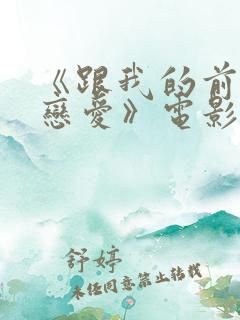 《跟我的前
戀愛》電影
舒婷
未經同意禁止轉載